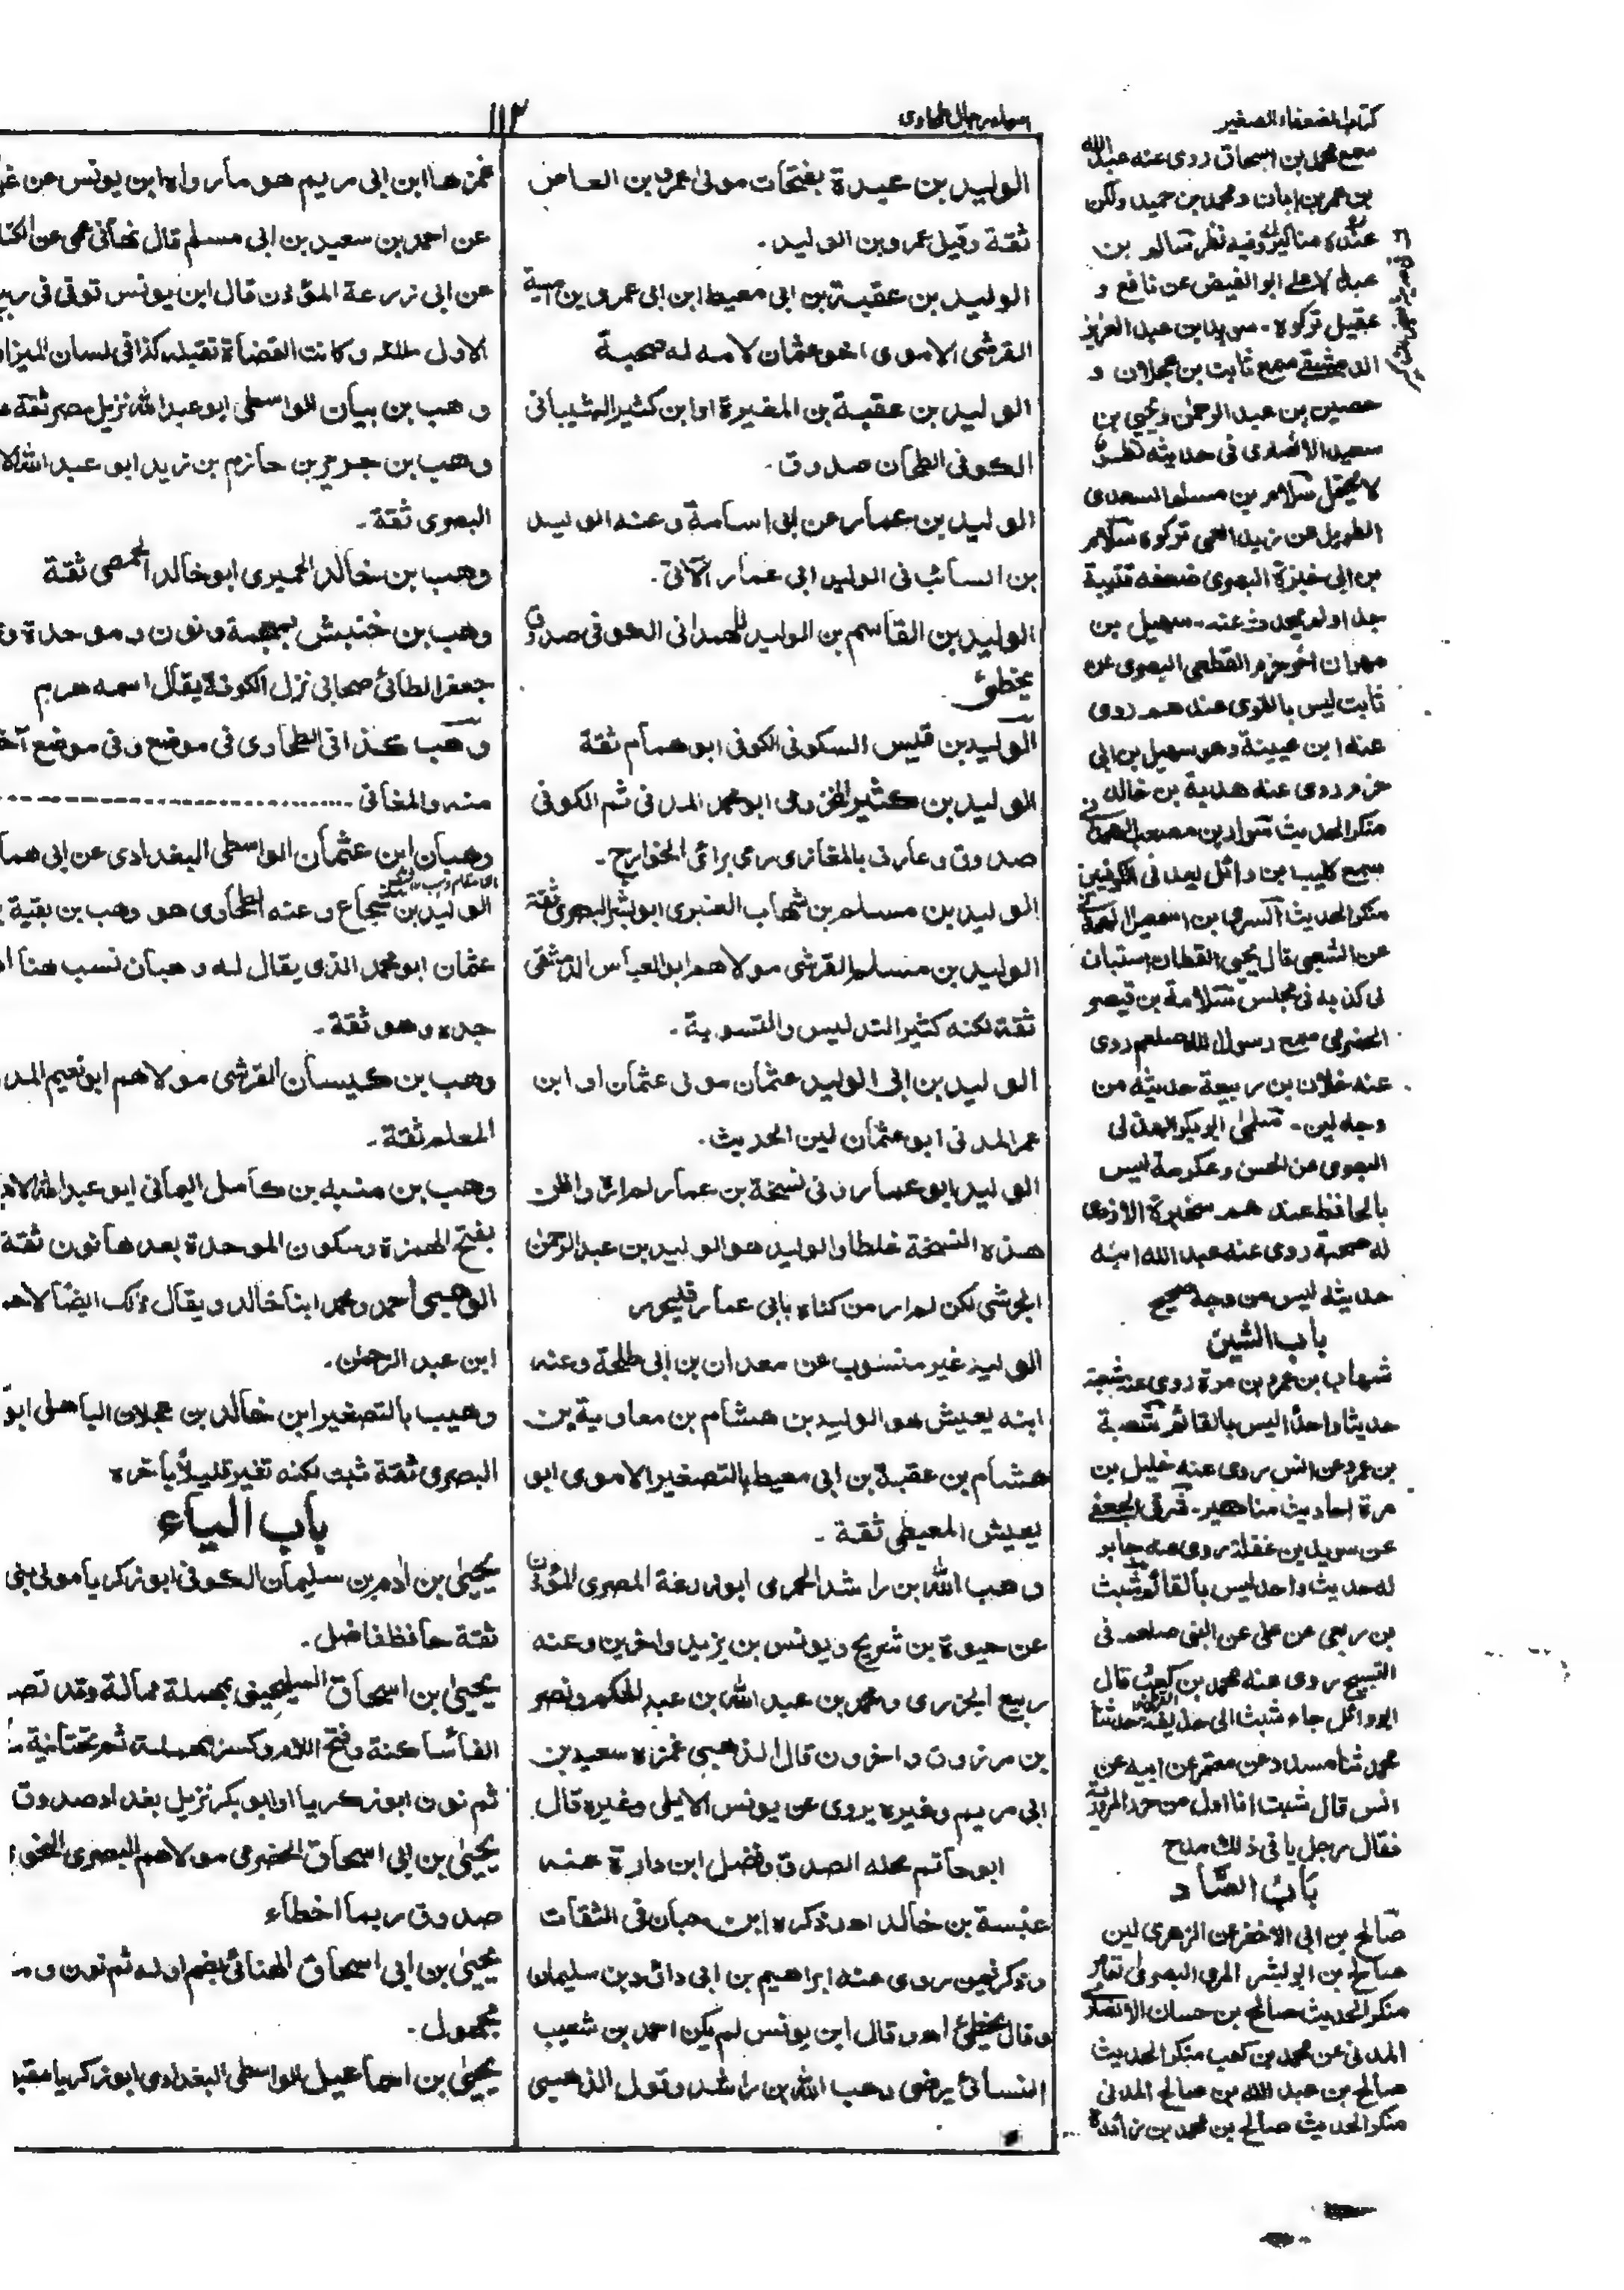 كتاب الضعفاء الصغير
اسماء رجال الطحاوى
١١٢
سمع محمد بن اسحاق روى عنه عبد الله
بن عمر بن ابان و محمد بن حميد ولكن
عنده مناكير وفيه نظر سالم بن
عبد الاعلى ابو الفيض عن نافع و
عقيل تركوه - سويد بن عبد العزيز
الدمشقى سمع ثابت بن عجلان و
حصين بن عبد الرحمن ويحيى بن
سعيد الانصارى فى حديثه نظر
لا يحتمل سلام بن مسلم السعدى
الطويل عن زيد العمى تركوه سلام
بن ابى خبزة البصرى ضعفه قتيبة
جدا ولم يحدث عنه - سهيل بن
مهران اخو حزم القطعى البصرى عن
ثابت ليس بالقوى عندهم روى
عنه ابن عيينة وهو سهيل بن ابى
حزم روى عنه هدبة بن خالد
منكر الحديث سوار بن مصعب الهمدانى
سمع كليب بن وائل يعد فى الكوفيين
منكر الحديث السرى بن اسمعيل الهمدانى
عن الشعبى قال يحيى القطان استبان
لى كذبه فى مجلس سلامة بن قيصر
الحضرمى سمع رسول الله صلعم روى
عنه فلان بن ربيعة حديثه من
وجه لين - سلمى ابو بكر الهذلى
البصرى عن الحسن وعكرمة ليس
بالحافظ عندهم سخبرة الازدى
له صحبة روى عنه عبد الله ابنه
حديثه ليس من وجه صحيح
باب الشين
شهاب بن عمرو بن مرة روى عنه شيبة
حديثا واحدا ليس بالقائم شعبة
بن عمرو عن انس روى عنه خليل بن
مرة احاديث مناكير - شرقى الجعفى
عن سويد بن غفلة روى عنه جابر
له حديث واحد ليس بالقائم شبث
بن ربعى عن على عن النبى صلعم فى
التسبيح روى عنه محمد بن كعب قال
ابو وائل جاء شبث الى حذيفة حدثنا
محمد ثنا مسدد عن معتمر عن ابيه عن
انس قال شبث انا اول من حرر الحرورية
فقال رجل ما فى ذلك مدح
باب الصاد
صالح بن ابى الاخضر عن الزهرى لين
صالح بن ابو بشر المرى البصرى
منكر الحديث صالح بن حسان الانصارى
المدنى عن محمد بن كعب منكر الحديث
صالح بن عبد الله بن صالح المدنى
منكر الحديث صالح بن محمد بن زائدة
الوليد بن عبدة بفتحات مولى عمرو بن العاص
ثقة وقيل عمرو بن الوليد -
الوليد بن عقبة بن ابى معيط ابن ابى عمرو بن امية
القرشى الاموى اخو عثمان لامه له صحبة
الوليد بن عقبة بن المغيرة او ابن كثير الشيبانى
الكوفى الطحان صدوق -
الوليد بن عمار عن ابى اسامة وعنه الوليد
بن السائب فى الوليد ابى عمار الآتى -
الوليد بن القاسم بن الوليد الهمدانى الكوفى صدوق
يخطئ
الوليد بن قيس السكونى الكوفى ابو همام ثقة
الوليد بن كثير المخزومى ابو محمد المدنى ثم الكوفى
صدوق وعارف بالمغازى رمى برائ الخوارج -
الوليد بن مسلم بن شهاب العنبرى ابو بشر البصرى ثقة
الوليد بن مسلم القرشى مولاهم ابو العباس الدمشقى
ثقة لكنه كثير التدليس والتسوية -
الوليد بن ابى الوليد عثمان مولى عثمان او ابن
عمر المدنى ابو عثمان لين الحديث -
الوليد ابو عمار وفى نسخة بن عمار لم اره واظن
هذه النسخة غلطا والوليد هو الوليد بن عبد الرحمن
الجرشى لكن لم ار من كناه بابى عمار فليحرر
الوليد غير منسوب عن معدان بن ابى طلحة وعنه
ابنه يعيش هو الوليد بن هشام بن معاوية بن
هشام بن عقبة بن ابى معيط بالتصغير الاموى ابو
يعيش المعيطى ثقة -
وهب الله بن راشد الحجرى ابو زرعة المصرى المؤذن
عن حيوة بن شريح ويونس بن يزيد واخرين وعنه
ربيع الجيزى ومحمد بن عبد الله بن عبد الحكم ونصر
بن مرزوق واخرون قال الذهبى غمزه سعيد بن
ابى مريم وغيره يروى عن يونس الايلى وغيره قال
ابو حاتم محله الصدق وفضل ابن وارة عنه
عنبسة بن خالد اھ وذكره ابن حبان فى الثقات
وذكر فيمن روى عنه ابراهيم بن ابى داؤد بن سليمان
وقال يخطئ اھ وقال ابن يونس لم يكن احمد بن شعيب
النسائى يرضى وهب الله بن راشد وقول الذهبى
غمزها ابن ابى مريم هو مارواه ابن يونس عن
عن احمد بن سعيد بن ابى مسلم قال نهانى عمى عن
عن ابى زرعة المؤذن قال ابن يونس توفى فى ربيع
الاول وكانت القضاة تقبله كذا فى لسان الميزان
وهب بن بيان الواسطى ابو عبد الله نزيل مصر ثقة
وهب بن جرير بن حازم بن زيد ابو عبد الله
البصرى ثقة -
وهب بن خالد الحميرى ابو خالد الحمصى ثقة
وهب بن خنبش بمعجمة ونون وموحدة و
جعفر الطائى صحابى نزل الكوفة يقال اسمه هرم
وهب كذا فى الطحاوى فى موضع وفى موضع
منه والمغانى
وهبان ابن عثمان الواسطى البغدادى عن ابى
الوليد بن شجاع وعنه الطحاوى هو وهب بن بقية
عثمان ابو محمد الذى يقال له وهبان نسب هنا
جده وهو ثقة -
وهب بن كيسان القرشى مولاهم ابو نعيم
المعلم ثقة -
وهب بن منبه بن كامل اليمانى ابو عبد الله
بفتح الهمزة وسكون الموحدة بعدها نون ثقة
الوهبى احمد ومحمد ابنا خالد ويقال ذلك ايضا لاحمد
ابن عبد الرحمن -
وهيب بالتصغير ابن خالد بن عجلان الباهلى ابو
البصرى ثقة ثبت لكنه تغير قليلا بأخره
باب الياء
يحيى بن ادم بن سليمان الكوفى ابو زكريا مولى بنى
ثقة حافظ فاضل -
يحيى ابن اسحاق السيلحينى بمهملة ممالة وقد
الفا ساكنة وفتح اللام وكسر مهملة ثم تحتانية
ثم نون ابو زكريا او ابو بكر نزيل بغداد صدوق
يحيى بن ابى اسحاق الحضرمى مولاهم البصرى
صدوق ربما اخطاء
يحيى بن ابى اسحاق الهنائى بضم اوله ثم نون و
مجهول -
يحيى بن اسماعيل الواسطى البغدادى ابو زكريا